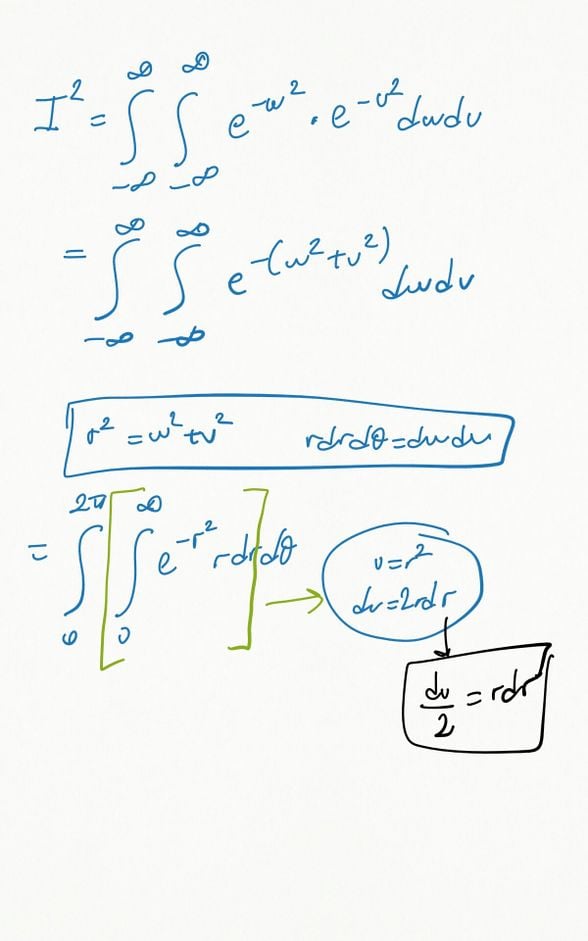 I² = ∫_{-∞}^{∞} ∫_{-∞}^{∞} e^{-w²} · e^{-v²} dw dv
= ∫_{-∞}^{∞} ∫_{-∞}^{∞} e^{-(w²+v²)} dw dv
r² = w² + v² r dr dθ = dw dv
= ∫_{0}^{2π} [ ∫_{0}^{∞} e^{-r²} r dr ] dθ → u = r²
du = 2r dr
du/2 = r dr